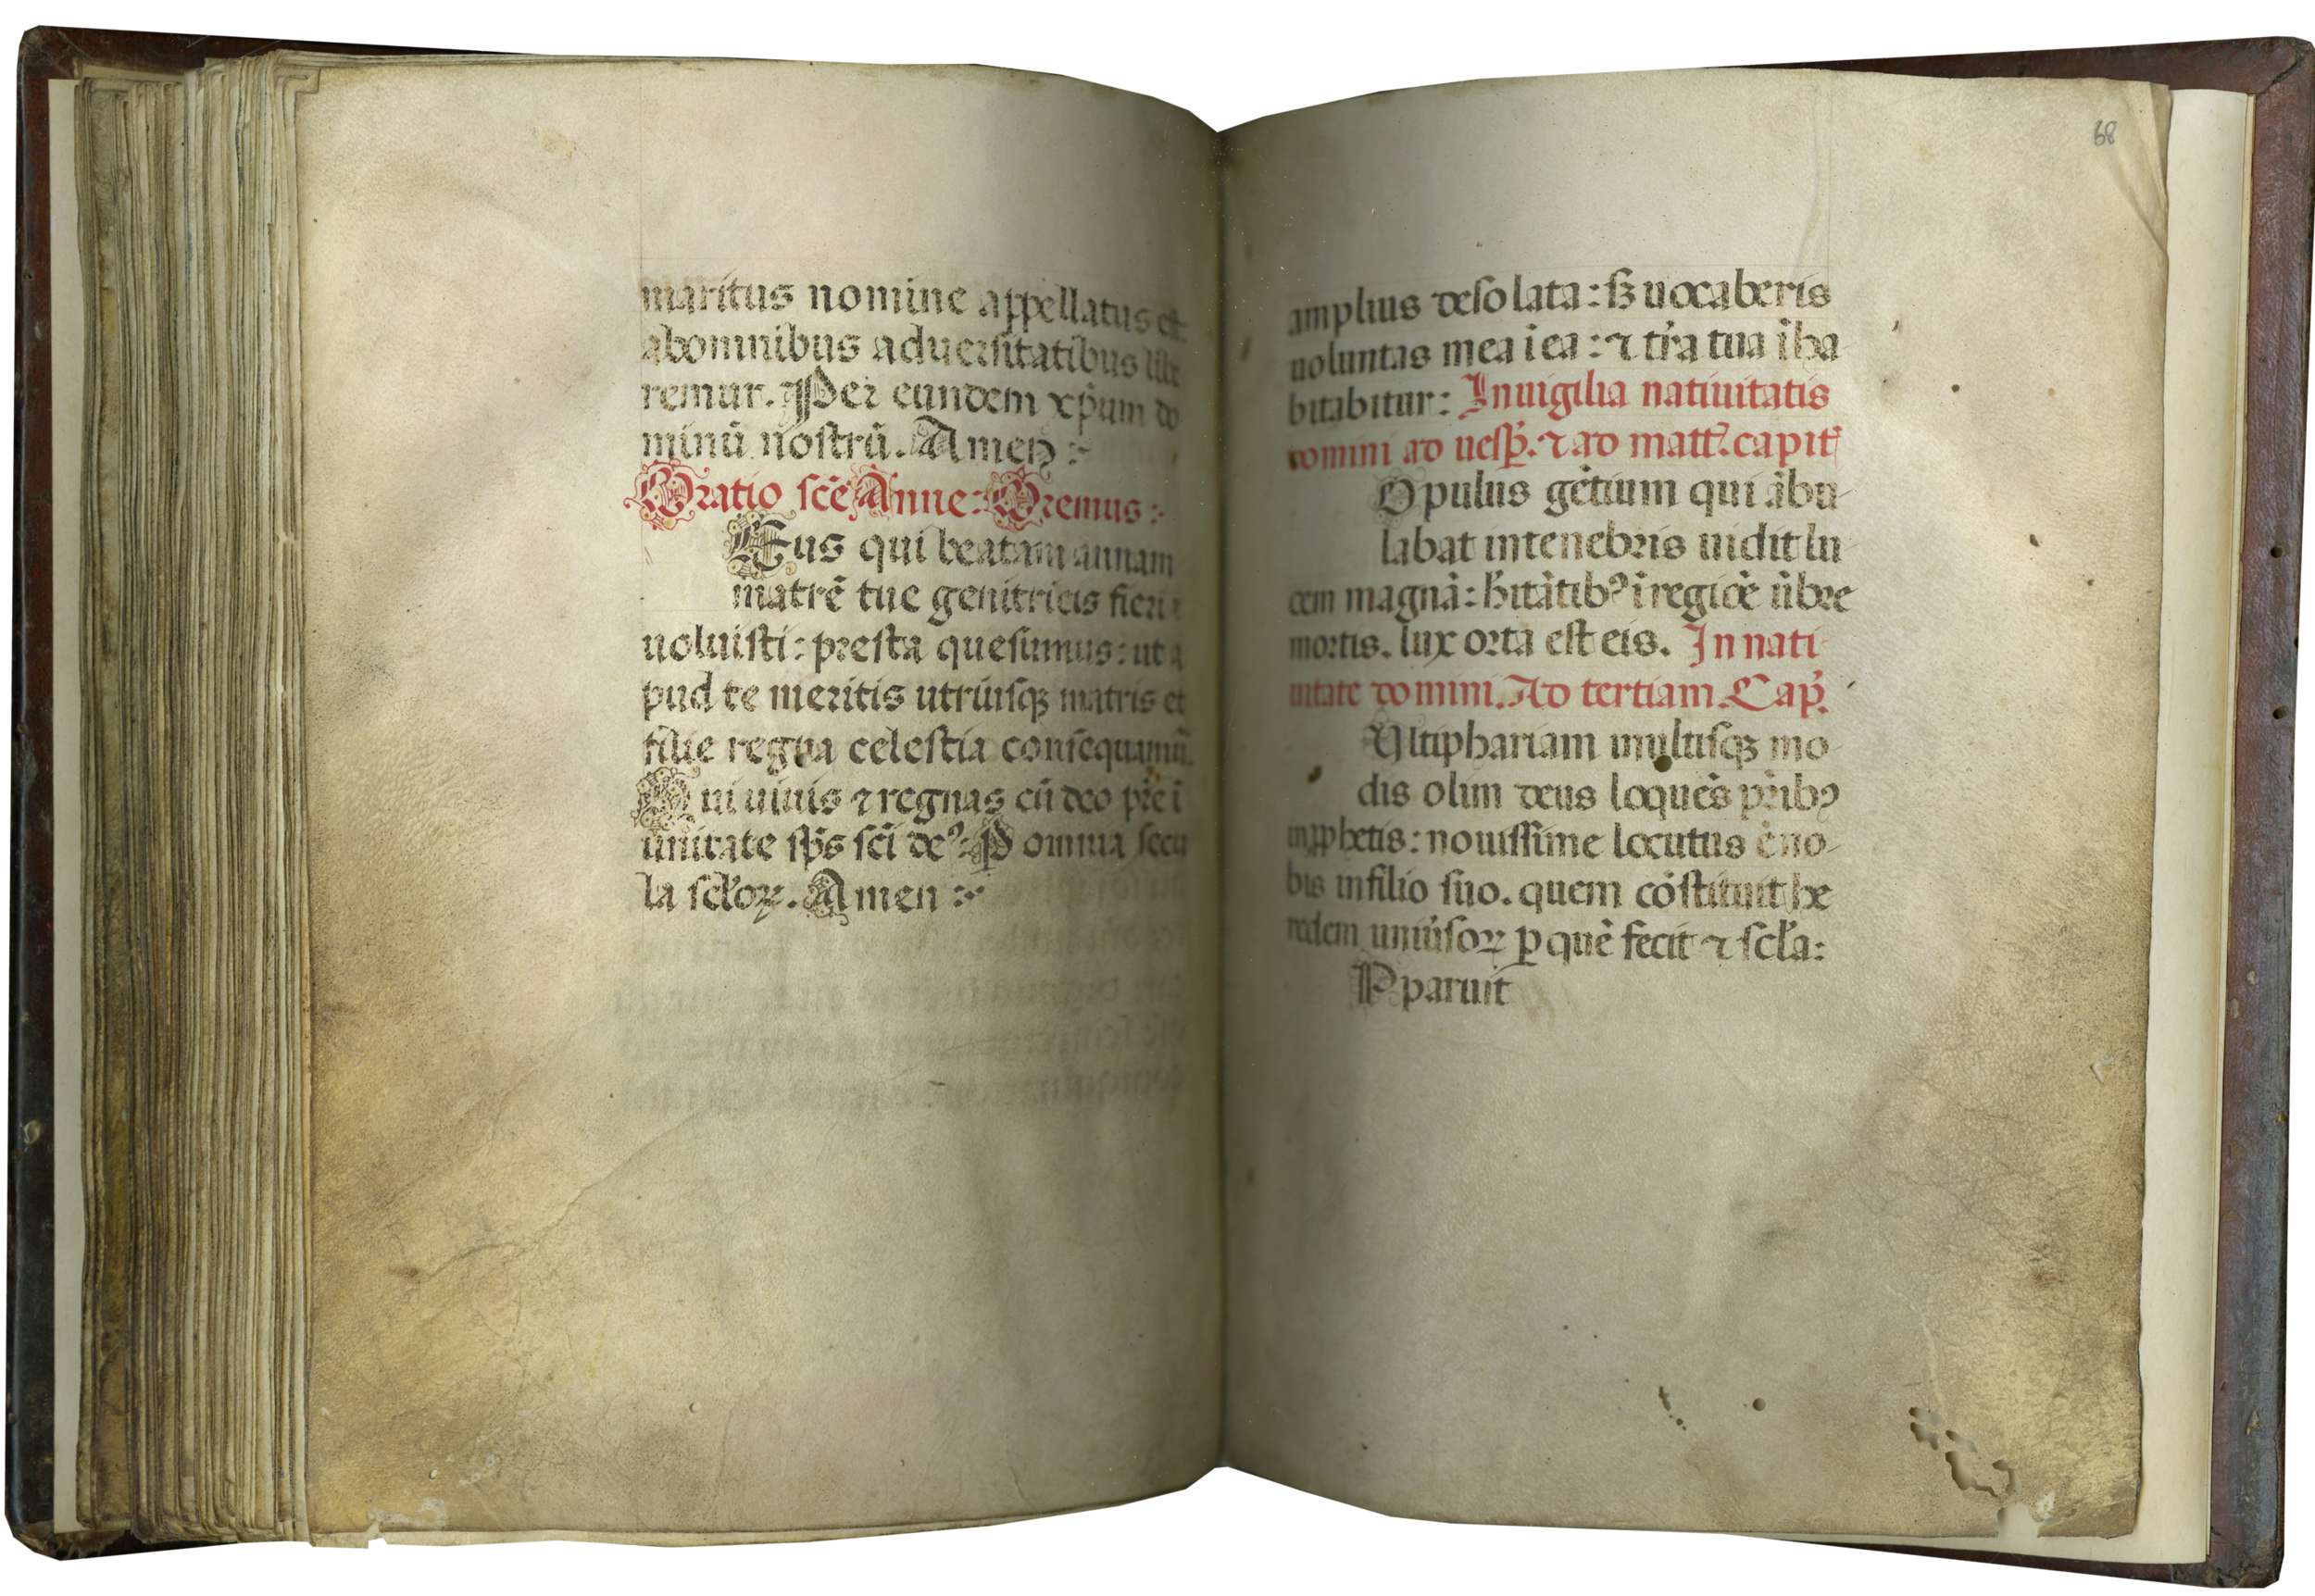 maritus nomine appellatus et
abomnibus aduersitatibus libe
remur. Per eundem xp̄um do
minū nostrū. Amen :-
Oratio scē Anne: Oremus :-
Eus qui beatam annam
matrē tue genitricis fieri
uoluisti: presta quesumus: ut a
pud te meritis utriusqꝫ matris et
filie regna celestia consequamur̄
Qui uiuis ⁊ regnas cū deo pr̄e ī
ūnitate sp̄s sc̄i de⁹: P omnia secu
la sc̄loꝝ. Amen :-
68
amplius desolata: sꝫ uocaberis
uoluntas mea ī ea: ⁊ tr̄a tua īha
bitabitur: Inuigilia natiuitatis
domini ad uesp̄. ⁊ ad matt̄. capit̄
Opulus gētium qui ābu-
labat intenebris uidit lu-
cem magnā: hītātibꝰ ī regiōe ūbre
mortis. lux orta est eis. In nati-
uitate domini. Ad tertiam. Cap̄.
Vltiphariam multisqꝫ mo-
dis olim deus loquēs pr̄ibꝰ
inꝓphetis: nouissime locutus ē no-
bis infilio suo. quem cōstituit he
redem uniūsoꝝ ꝑ quē fecit ⁊ sc̄la:
Pparuit